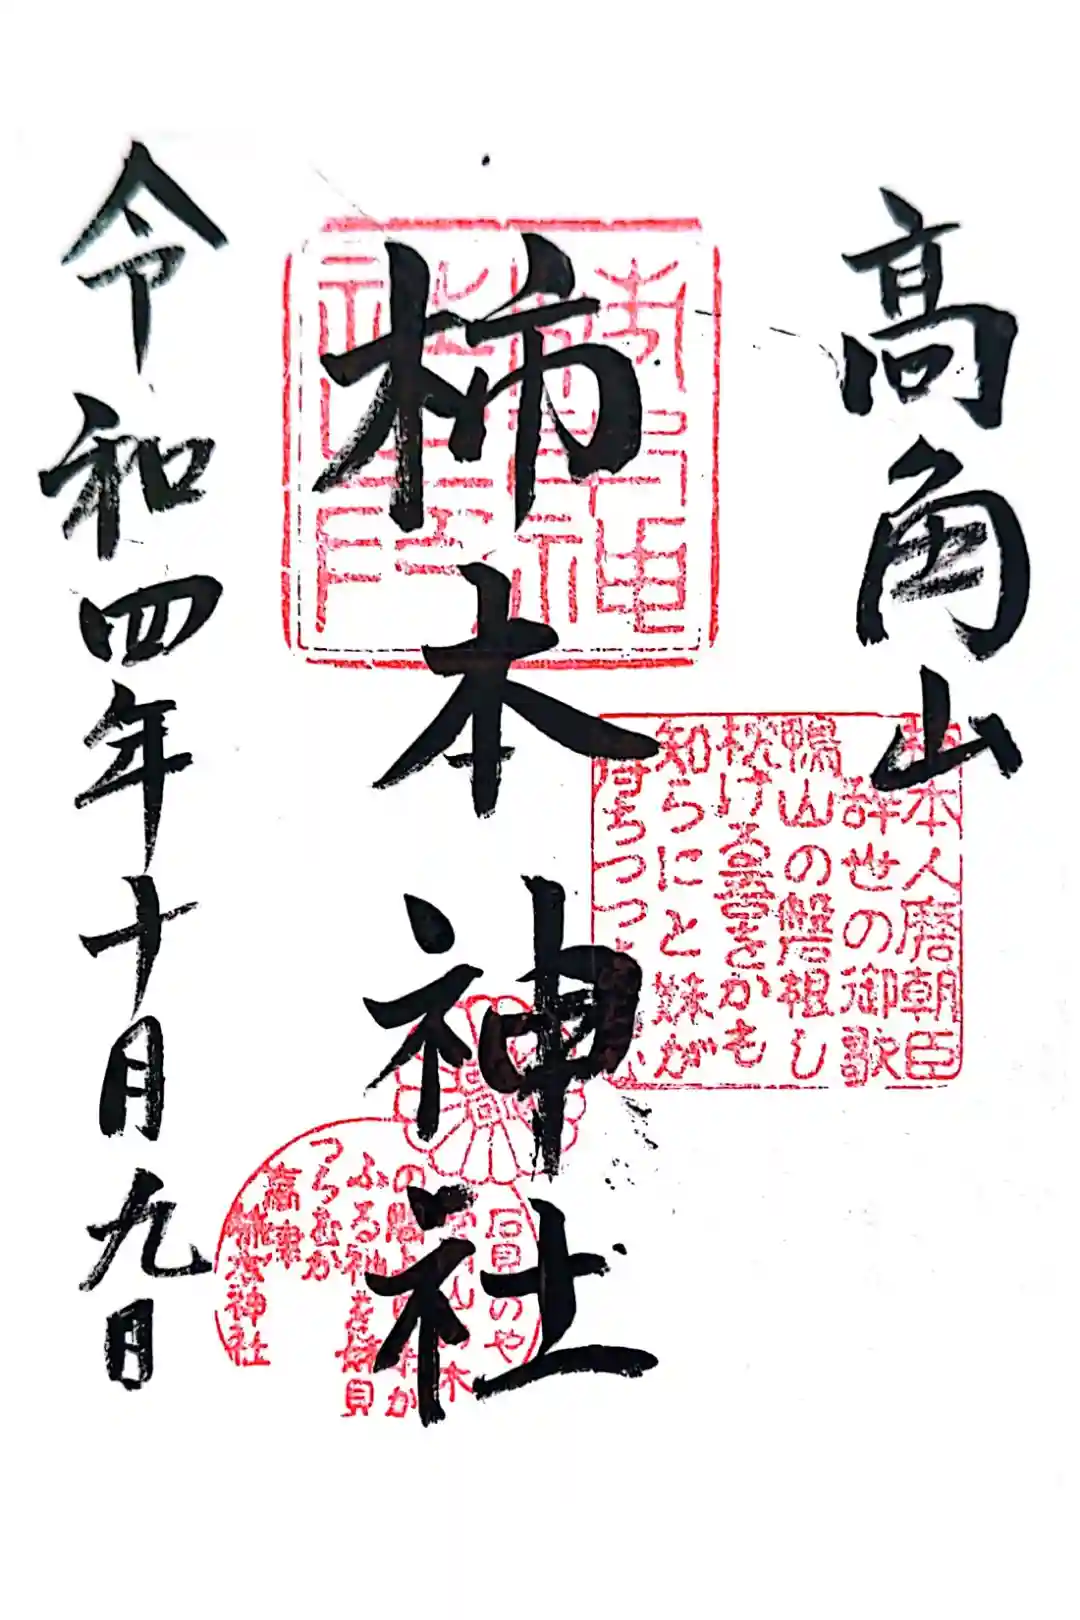 高角山
柿本神社
令和四年十月九日
本人麿朝臣
辞世の御歌
鴨山の磐根し
枕ける吾をかも
知らにと妹が
待ちつつ
石見のや
ふる袖を
つらむか
高津
柿本神社